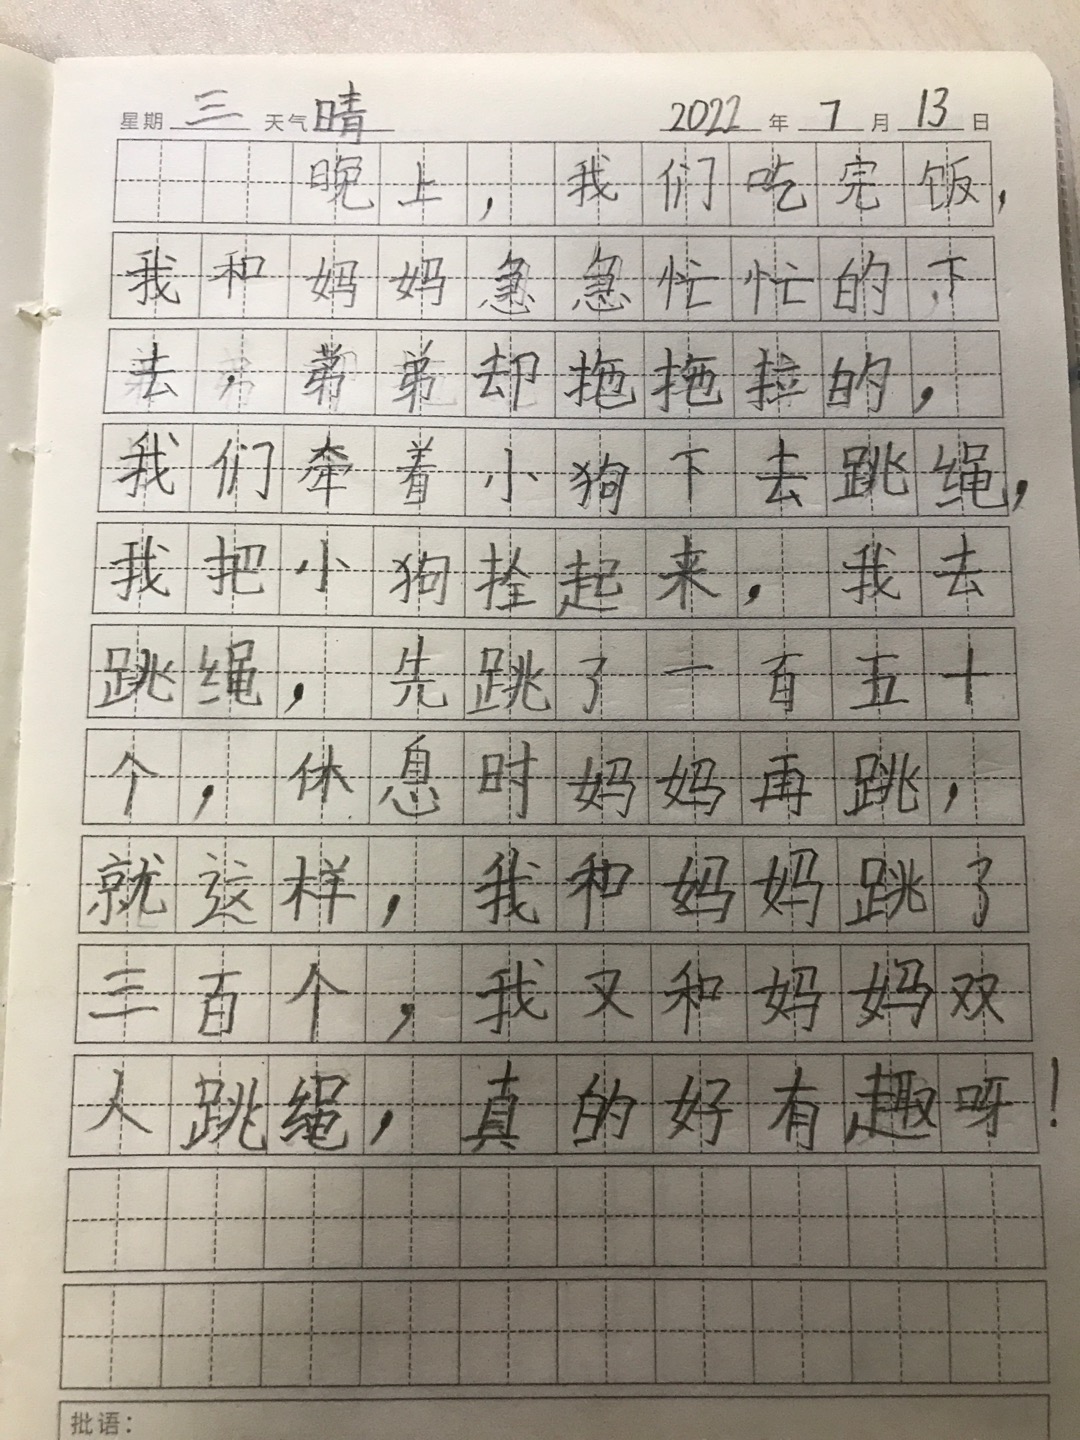 星期 三 天气 晴 2022 年 7 月 13 日
晚上，我们吃完饭，
我和妈妈急急忙忙的下
去，弟弟却拖拖拉的，
我们牵着小狗下去跳绳，
我把小狗拴起来，我去
跳绳，先跳了一百五十
个，休息时妈妈再跳，
就这样，我和妈妈跳了
三百个，我又和妈妈双
人跳绳，真的好有趣呀！
批语：